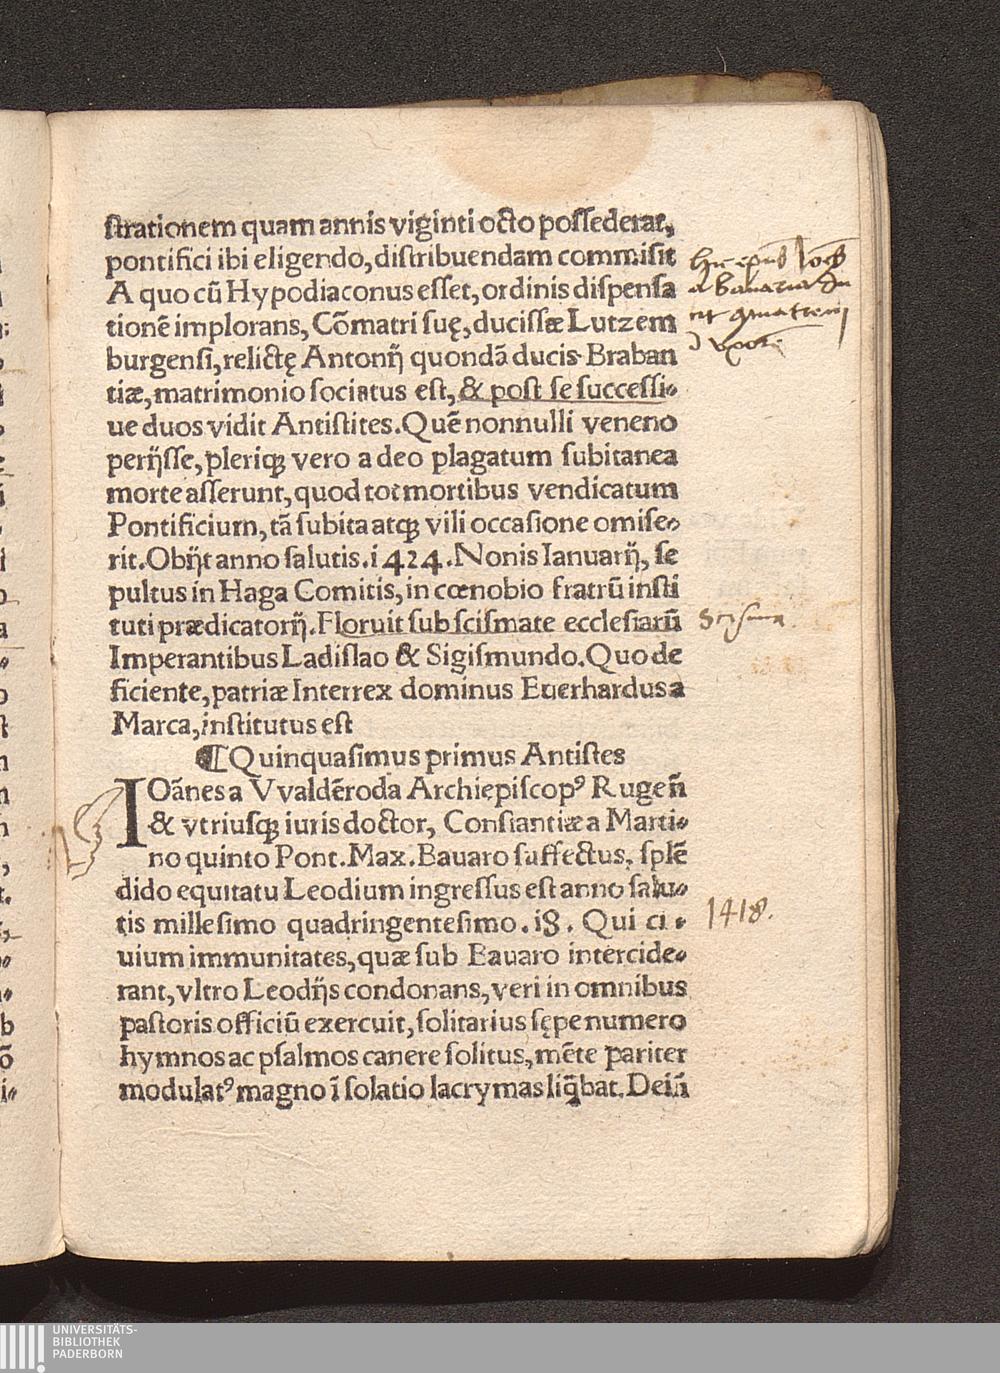 ſtrationem quam annis viginti octo poſſederat,
pontifici ibi eligendo, diſtribuendam commiſit
A quo cũ Hypodiaconus eſſet, ordinis diſpenſa
tionẽ implorans, Cõmatri ſuę, duciſſæ Lutzem
burgenſi, relictę Antonĳ quondã ducis Braban
tiæ, matrimonio ſociatus eſt, & poſt ſe ſucceſſi⸗
ue duos vidit Antiſtites. Quẽ nonnulli veneno
perĳſſe, pleriqꝫ vero adeo plagatum ſubitanea
morte aſſerunt, quod tot mortibus vendicatum
Pontificium, tã ſubita atqꝫ vili occaſione omiſe⸗
rit. Obĳt anno ſalutis. i424. Nonis Ianuarĳ, ſe
pultus in Haga Comitis, in cœnobio fratrũ inſti
tuti prædicatorĳ. Floruit ſub ſciſmate eccleſiarũ
Imperantibus Ladiſlao & Sigiſmundo. Quo de
ficiente, patriæ Interrex dominus Euerhardus a
Marca, inſtitutus eſt
⸿ Quinquaſimus primus Antiſtes
IOãnes a Vvaldẽroda Archiepiſcopꝰ Rugeñ
& vtriuſqꝫ iuris doctor, Conſtantiæ a Marti⸗
no quinto Pont. Max. Bauaro ſuffectus, ſplẽ
dido equitatu Leodium ingreſſus eſt anno ſalu⸗
tis milleſimo quadringenteſimo. i8. Qui ci⸗
uium immunitates, quæ ſub Bauaro intercide⸗
rant, vltro Leodĳs condonans, veri in omnibus
paſtoris officiũ exercuit, ſolitarius ſępenumero
hymnos ac pſalmos canere ſolitus, mẽte pariter
modulatꝰ magno ĩ ſolatio lacrymas liq̃bat. Deiñ
hic
a Bavaria
Sciſma
1418.
UNIVERSITÄTS-
BIBLIOTHEK
PADERBORN